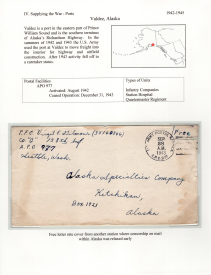 IV. Supplying the War - Ports 1942-1945
Valdez, Alaska
Valdez is a port in the eastern part of Prince
William Sound and is the southern terminus
of Alaska's Richardson Highway. In the
summer of 1942 and 1943 the U.S. Army
used the port at Valdez to move freight into
the interior for highway and airfield
construction. After 1943 activity fell off to
a caretaker status.
Postal Facilities
APO 977
Activated: August 1942
Ceased Operation: December 31, 1943
Types of Units
Infantry Companies
Station Hospital
Quartermaster Regiment
Co "D"
A.P.O. 977
Seattle, Wash.
SEP
A.M.
1943
Free
Alaska Specialties Company
Ketchikan,
Box 1921
Alaska
Free letter rate cover from another station where censorship on mail
within Alaska was relaxed early